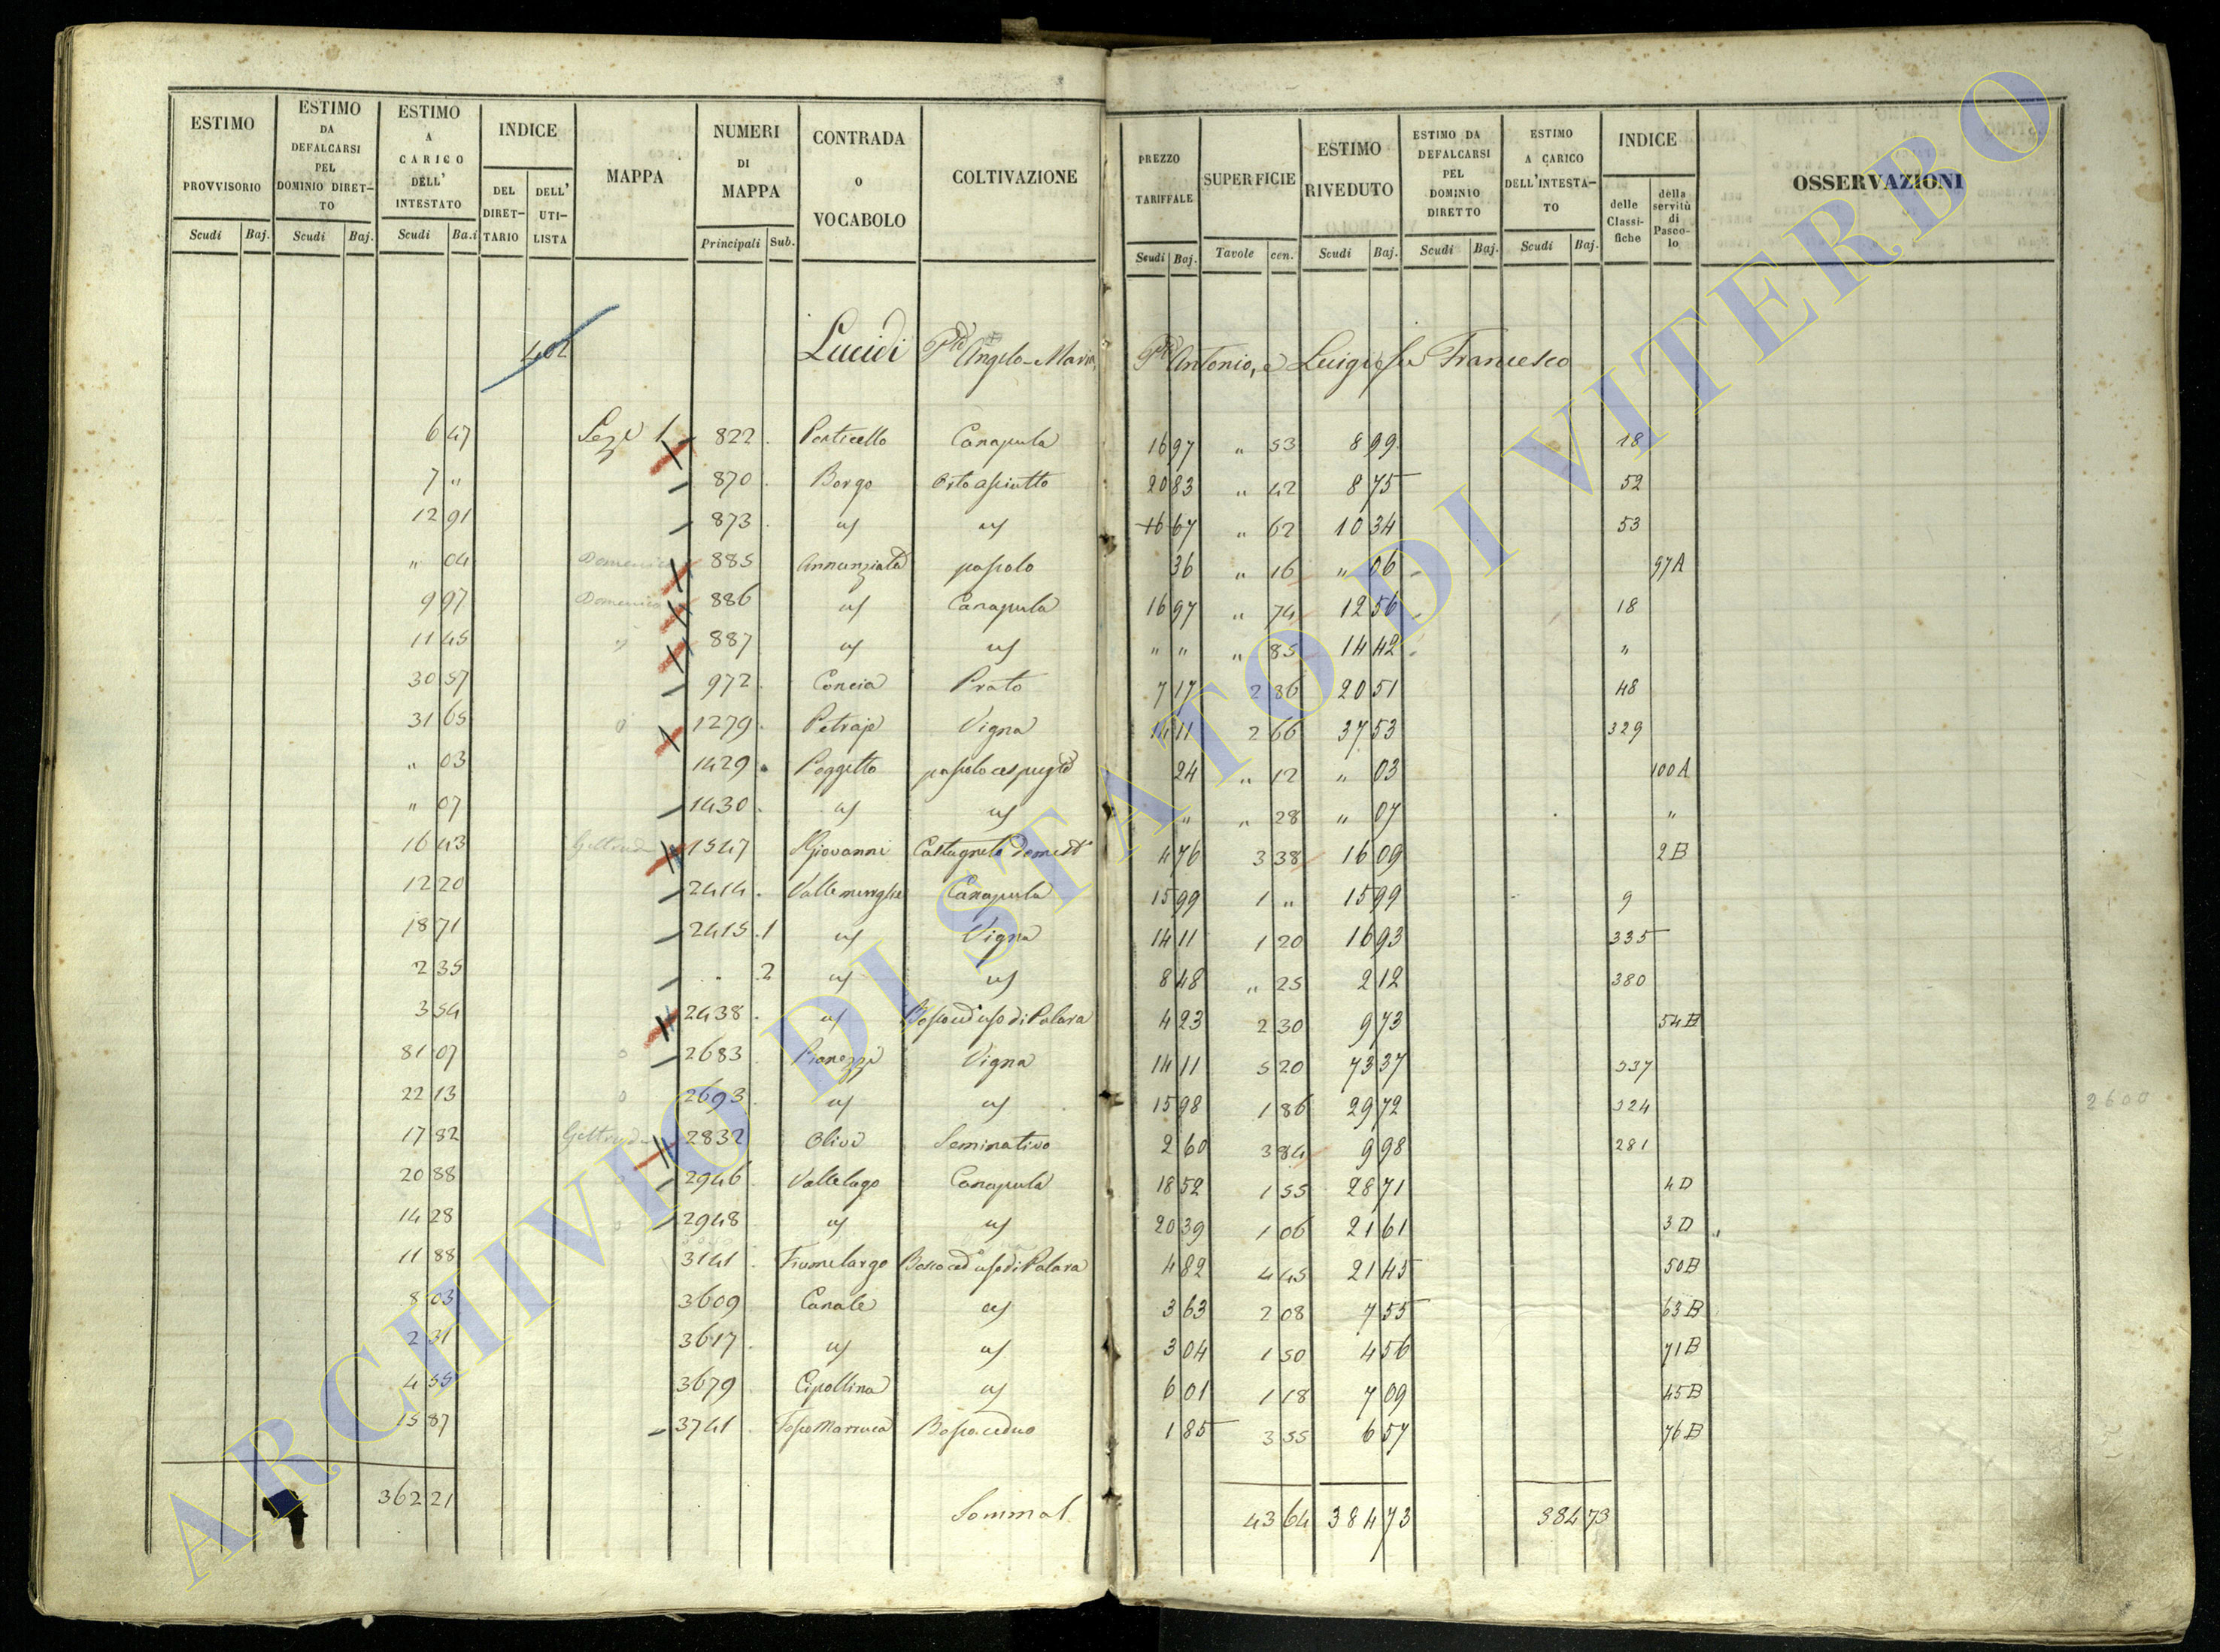 ESTIMO PROVVISORIO ESTIMO DA DEFALCARSI PEL DOMINIO DIRET-TO ESTIMO A CARICO DELL' INTESTATO INDICE DEL DIRET-TARIO DELL' UTI-LISTA MAPPA NUMERI DI MAPPA CONTRADA O VOCABOLO COLTIVAZIONE PREZZO TARIFFALE SUPERFICIE ESTIMO RIVEDUTO ESTIMO DA DEFALCARSI PEL DOMINIO DIRETTO ESTIMO A CARICO DELL'INTESTA-TO INDICE delle Classi-fiche della servitù di Pasco-lo OSSERVAZIONI
Scudi Baj. Scudi Baj. Scudi Ba.i Principali Sub. Scudi Baj. Tavole cen. Scudi Baj. Scudi Baj. Scudi Baj.
402 Lucidi Angelo-Maria, Antonio, e Luigi fu Francesco
6 47 822 Ponticello Canapula 16 97 " 53 8 99 18
7 " 870 Borgo Orto asciutto 20 83 " 42 8 75 52
12 91 873 " 62 10 34 53
" 04 Domenico 885 Annunziata pascolo 36 " 16 " 06 97A
9 97 Domenico 886 Canapula 16 97 " 74 12 56 18
11 45 " 887 " " " 85 14 42 "
30 57 972 Concia Prato 7 17 2 86 20 51 48
31 65 1279 Petraje Vigna 14 11 2 66 37 53 329
" 03 1429 Poggetto 24 " 12 " 03 100A
" 07 1430 " " 28 " 07 "
16 43 1547 S Giovanni Castagneto 4 76 3 38 16 09 2B
12 20 2414 Canapula 15 99 1 " 15 99 9
18 71 2415 1 Vigna 14 11 1 20 16 93 335
2 35 2 8 48 " 25 2 12 380
3 54 2438 4 23 2 30 9 73 54B
81 07 2683 Pianezze Vigna 14 11 5 20 73 37 337
22 13 2693 15 98 1 86 29 72 324
17 82 2832 Olive Seminativo 2 60 3 84 9 98 281
20 88 2946 Vallelago Canapula 18 52 1 55 28 71 4D
14 28 2948 20 39 1 06 21 61 3D
11 88 3141 Fiumelargo Bosco ced° uso di Palara 4 82 4 45 21 45 50B
8 03 3609 Canale 3 63 2 08 7 55 63B
2 31 3617 3 04 1 50 4 56 71B
4 55 3679 Cipollina 6 01 1 18 7 09 45B
15 87 3741 Bosco ceduo 1 85 3 55 6 57 76B
2600
362 21 43 64 384 73 384 73
ARCHIVIO DI STATO DI VITERBO